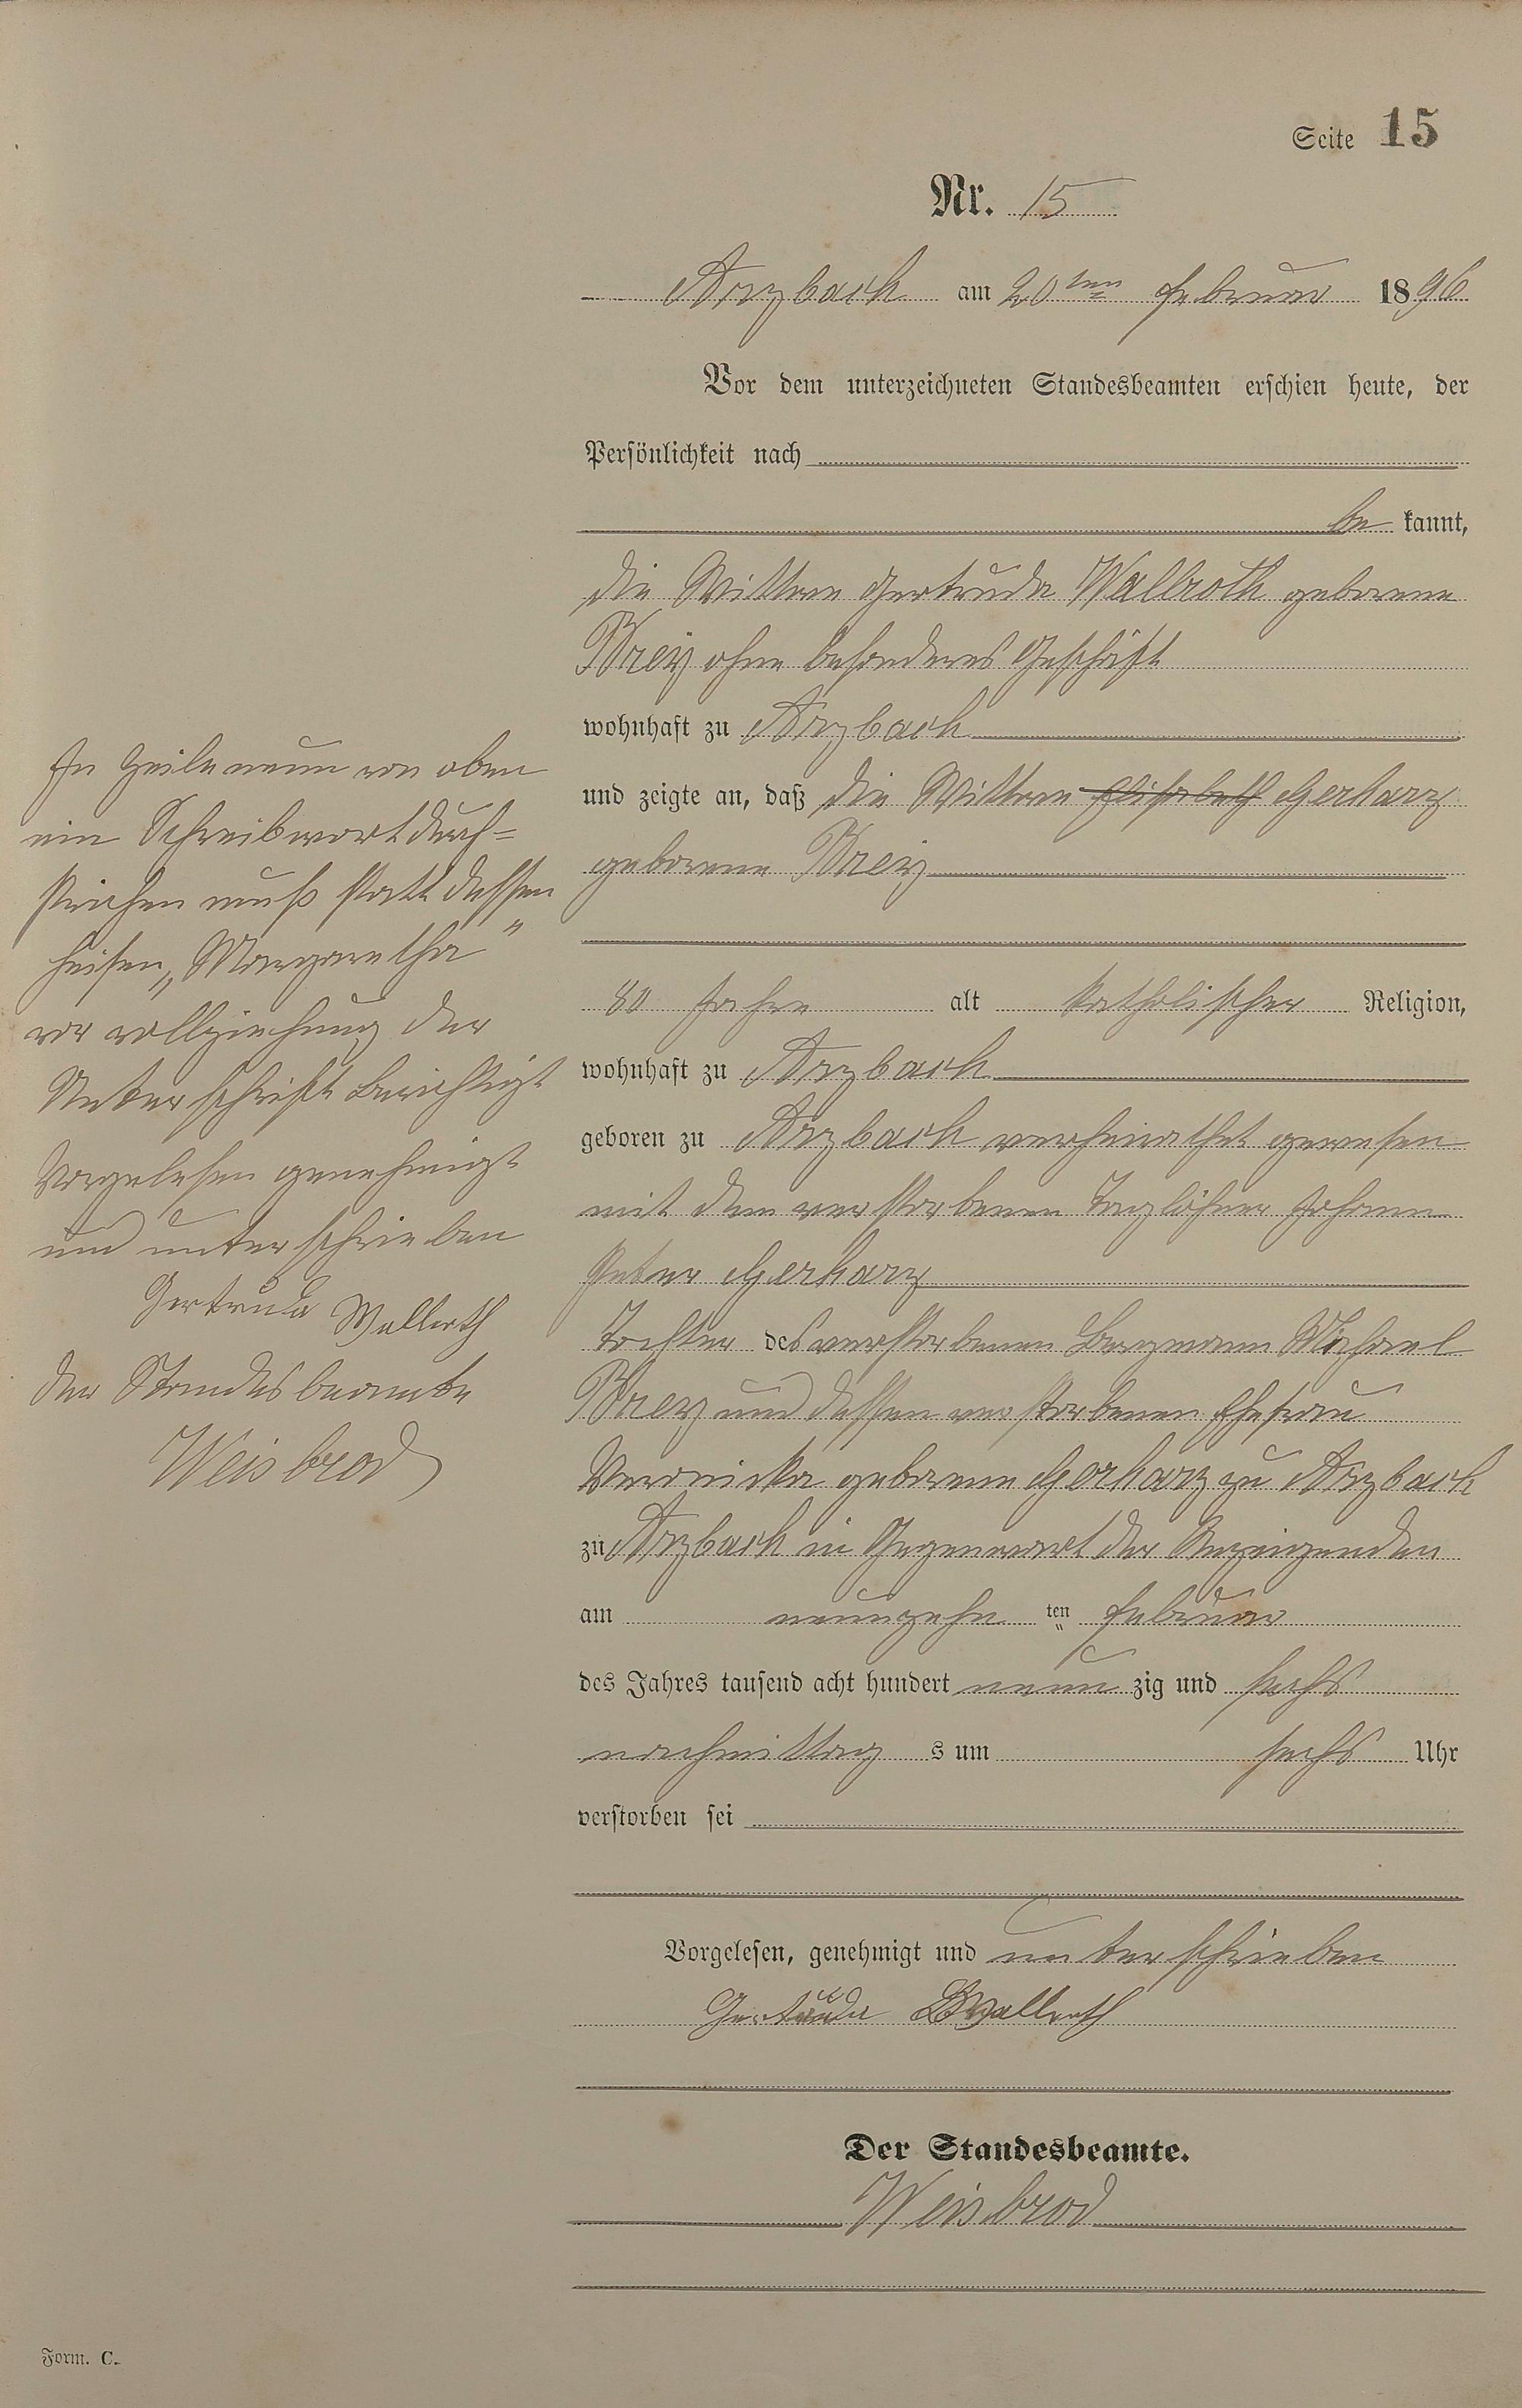 Seite 15
Nr. 15
Arzbach am 20ten Februar 1896
Vor dem unterzeichneten Standesbeamten erschien heute, der
Persönlichkeit nach
be kannt,
die Wittwe Gertruda Wallroth geborene
Brey ohne besonderes Geschäft
wohnhaft zu Arzbach
und zeigte an, daß die Wittwe Elisabeth Gerharz
geborene Brey
80 Jahre alt katholischer Religion,
wohnhaft zu Arzbach
geboren zu Arzbach verheirathet gewesen
mit dem verstorbenen Taglöhner Johann
Peter Gerharz
Tochter des verstorbenen Bergmann Michael
Brey und dessen verstorbenen Ehefrau
Veronicka geborene Gerharz zu Arzbach
zu Arzbach in Gegenwart der Anzeigenden
am neunzehn ten Februar
des Jahres tausend acht hundert neun zig und sechs
nachmittag s um sechs Uhr
verstorben sei
Vorgelesen, genehmigt und unterschrieben
Gertruda Wallroth
Der Standesbeamte.
Weisbrod
In Zeile neun von oben
ein Schreibwort durch=
strichen muß statt dessen
heisen „Margaretha"
vor vollziehung der
Unterschrift berichtigt
Vorgelesen genehmigt
und unterschrieben
Gertruda Wallroth
Der Standesbeamte
Weisbrod
Form. C.